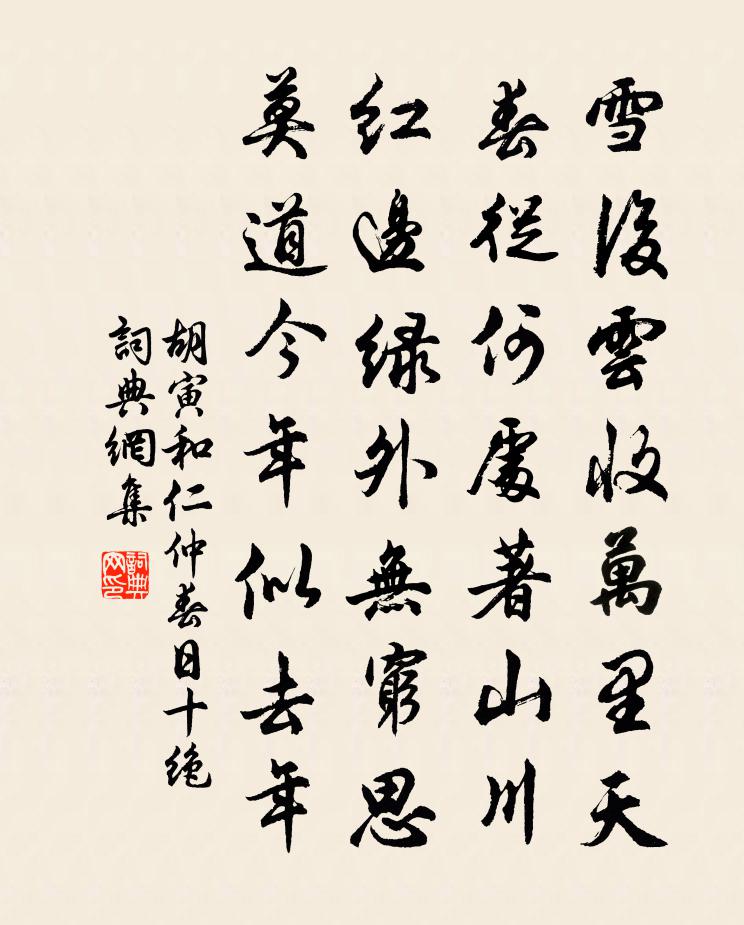 雪後雲收萬里天
春從何處著山川
紅邊綠外無窮思
莫道今年似去年
胡寅和仁仲春日十絕
詞典網集
詞典網印